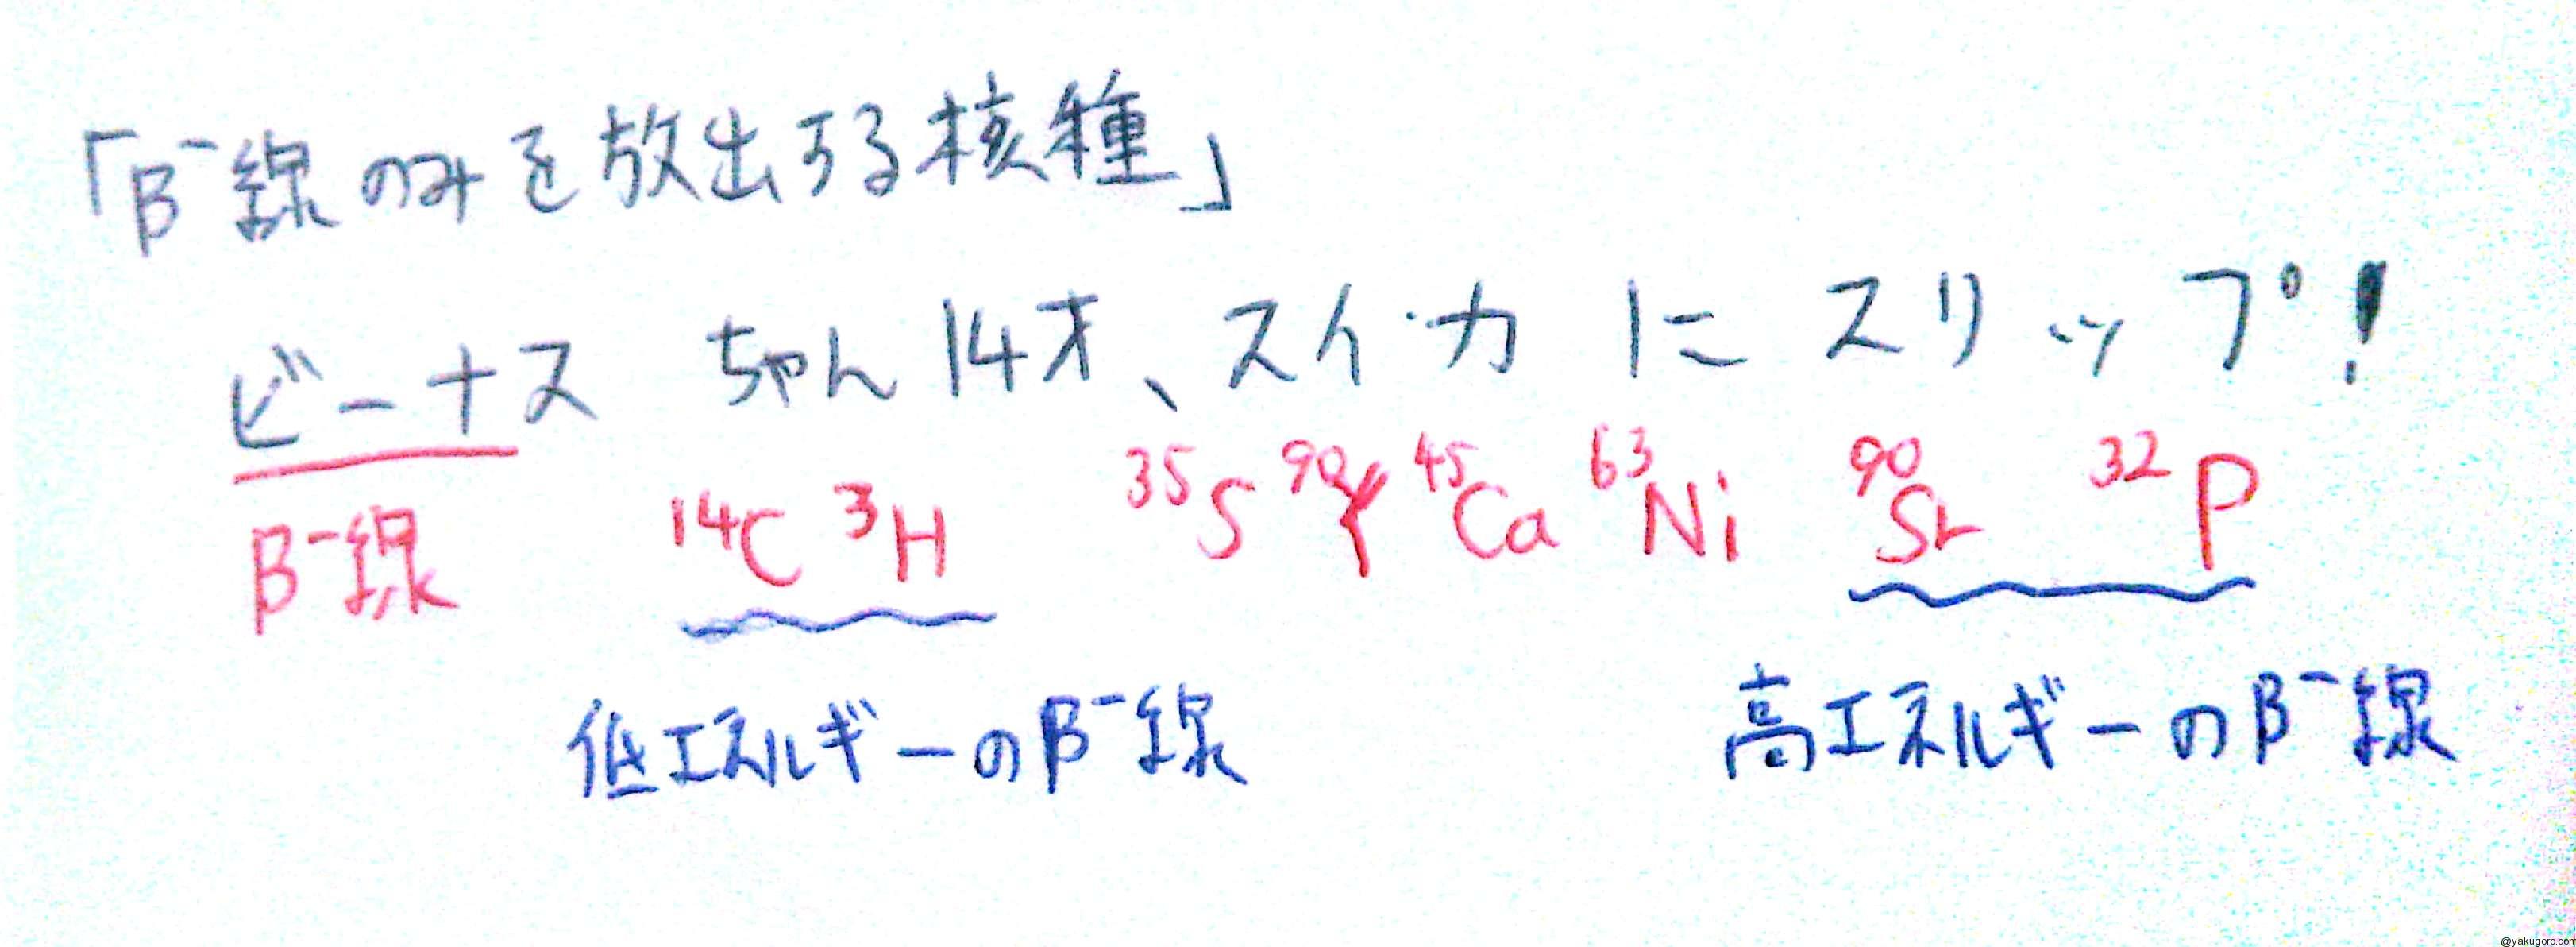 「β⁻線のみを放出する核種」
ビーナス ちゃん14才、スイカ に スリップ!
β⁻線 ¹⁴C ³H ³⁵S ⁹⁰Y ⁴⁵Ca ⁶³Ni ⁹⁰Sr ³²P
低エネルギーのβ⁻線 高エネルギーのβ⁻線
@yakugoro.com